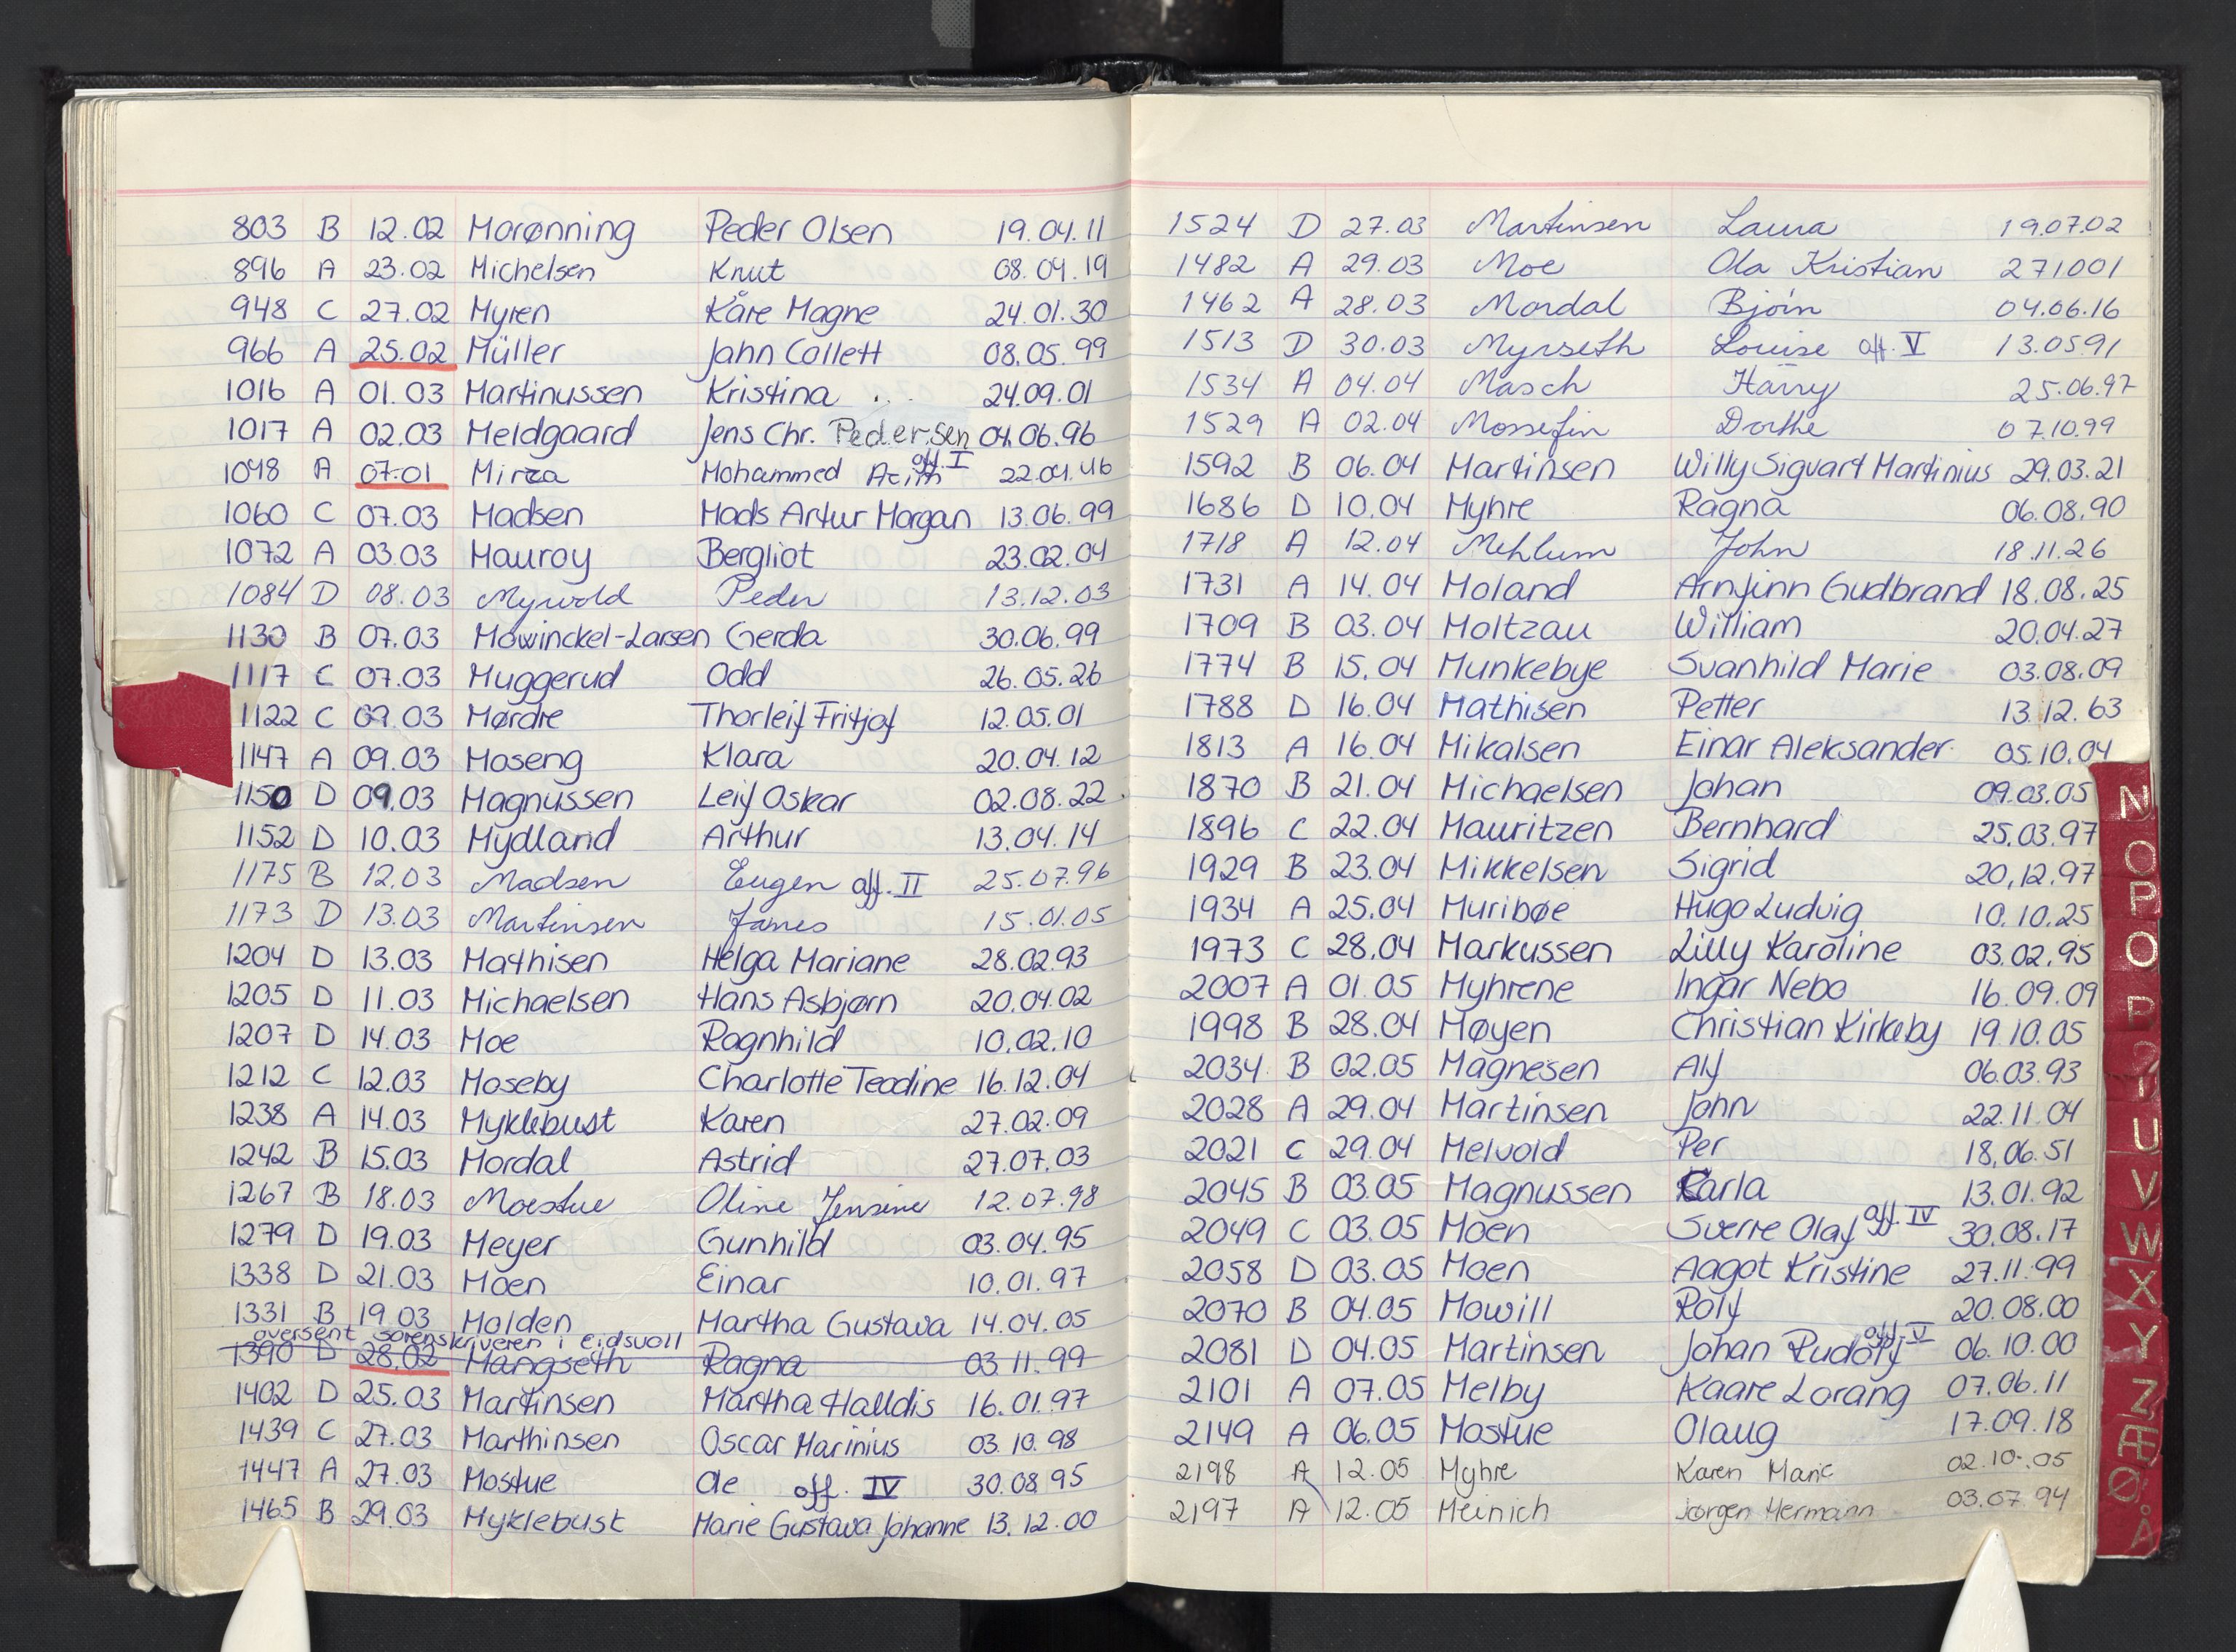 803 B 12.02 Morønning Peder Olsen 19.04.11
896 A 23.02 Michelsen Knut 08.04.19
948 C 27.02 Myren Kåre Magne 24.01.30
966 A 25.02 Müller Jahn Collett 08.05.99
1016 A 01.03 Martinussen Kristina 24.09.01
1017 A 02.03 Meldgaard Jens Chr. Pedersen 04.06.96
1048 A 07.01 Mirza Mohammed off. I 22.04.46
1060 C 07.03 Madsen Mads Artur Morgan 13.06.99
1072 A 03.03 Mauroy Bergliot 23.02.04
1084 D 08.03 Myrvold Peder 13.12.03
1130 B 07.03 Mowinckel-Larsen Gerda 30.06.99
1117 C 07.03 Muggerud Odd 26.05.26
1122 C 09.03 Mørdre Thorleif Fritjof 12.05.01
1147 A 09.03 Moseng Klara 20.04.12
1150 D 09.03 Magnussen Leif Oskar 02.08.22
1152 D 10.03 Mydland Arthur 13.04.14
1175 B 12.03 Madsen Eugen off. II 25.07.96
1173 D 13.03 Martinsen James 15.01.05
1204 D 13.03 Mathisen Helga Mariane 28.02.93
1205 D 11.03 Michaelsen Hans Asbjørn 20.04.02
1207 D 14.03 Moe Ragnhild 10.02.10
1212 C 12.03 Moseby Charlotte Teodine 16.12.04
1238 A 14.03 Myklebust Karen 27.02.09
1242 B 15.03 Mordal Astrid 27.07.03
1267 B 18.03 Moestue Oline Jensine 12.07.98
1279 D 19.03 Meyer Gunhild 03.04.95
1338 D 21.03 Moen Einar 10.01.97
1331 B 19.03 Molden Martha Gustava 14.04.05
oversent sorenskriveren i Eidsvoll
1390 D 28.02 Mangseth Ragna 03.11.99
1402 D 25.03 Martinsen Martha Halldis 16.01.97
1439 C 27.03 Marthinsen Oscar Marinius 03.10.98
1447 A 27.03 Mostue Ole off. IV 30.08.95
1465 B 29.03 Myklebust Marie Gustava Johanne 13.12.00
1524 D 27.03 Martinsen Laura 19.07.02
1482 A 29.03 Moe Ola Kristian 271001
1462 A 28.03 Mordal Bjørn 04.06.16
1513 D 30.03 Myrseth Louise off. V 13.0591
1534 A 04.04 Masch Harry 25.06.97
1529 A 02.04 Mossefin Dorthe 07.10.99
1592 B 06.04 Martinsen Willy Sigvart Martinius 29.03.21
1686 D 10.04 Myhre Ragna 06.08.90
1718 A 12.04 Mehlum John 18.11.26
1731 A 14.04 Moland Arnfinn Gudbrand 18.08.25
1709 B 03.04 Moltzau William 20.04.27
1774 B 15.04 Munkebye Svanhild Marie 03.08.09
1788 D 16.04 Mathisen Petter 13.12.63
1813 A 16.04 Mikalsen Einar Aleksander 05.10.04
1870 B 21.04 Michaelsen Johan 09.03.05
1896 C 22.04 Mauritzen Bernhard 25.03.97
1929 B 23.04 Mikkelsen Sigrid 20.12.97
1934 A 25.04 Muribøe Hugo Ludvig 10.10.25
1973 C 28.04 Markussen Lilly Karoline 03.02.95
2007 A 01.05 Myhrene Ingar Nebo 16.09.09
1998 B 28.04 Møyen Christian Kirkeby 19.10.05
2034 B 02.05 Magnesen Alf 06.03.93
2028 A 29.04 Martinsen John 22.11.04
2021 C 29.04 Melvold Per 18.06.51
2045 B 03.05 Magnussen Carla 13.01.92
2049 C 03.05 Moen Sverre Olaf off. IV 30.08.17
2058 D 03.05 Moen Aagot Kristine 27.11.99
2070 B 04.05 Mowill Rolf 20.08.00
2081 D 04.05 Martinsen Johan Rudolf off. V 06.10.00
2101 A 07.05 Melby Kaare Lorang 07.06.11
2149 A 06.05 Mostue Olaug 17.09.18
2198 A 12.05 Myhre Karen Marie 02.10.05
2197 A 12.05 Meinich Jørgen Hermann 03.07.94
N
O
P
U
V
W
X
Y
Z
Æ
Ø
Å